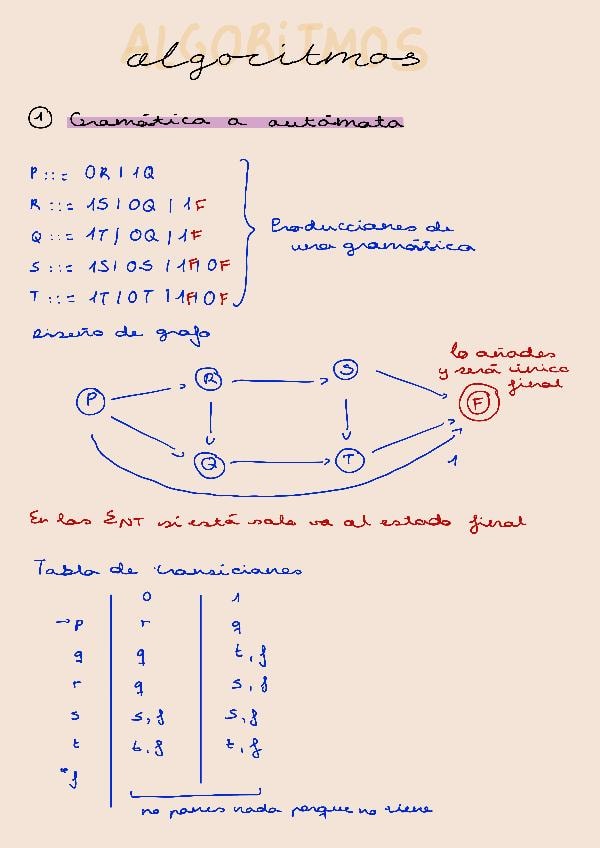 ALGORITMOS
algoritmos
1 Gramática a autómata
P::= 0R | 1Q
R::= 1S | 0Q | 1F
Q::= 1T | 0Q | 1F
S::= 1S | 0S | 1F | 0F
T::= 1T | 0T | 1F | 0F
Producciones de
una gramática
Diseño de grafo
lo añades
y será único
final
P R S F
Q T
1
En las ΣNT si está sola va al estado final
Tabla de transiciones
0 1
→p r q
q q t, f
r q s, f
s s, f s, f
t t, f t, f
*f
no pones nada porque no tiene